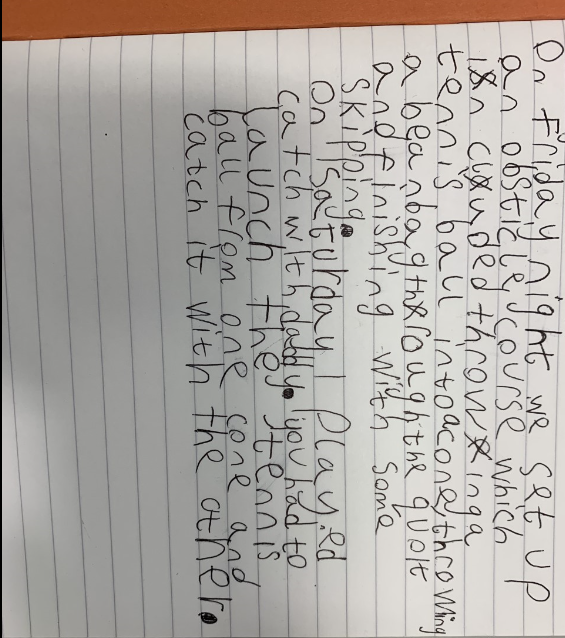 On friday night we set up
an obsticley course which
included throwinga
tennis ball intoacone, throwing
a beanbag throughthe quoit
and finishing with some
skipping.
On Saturday I played
catch with daddy. you had to
Launch the tennis
ball from one cone and
catch it with the other.